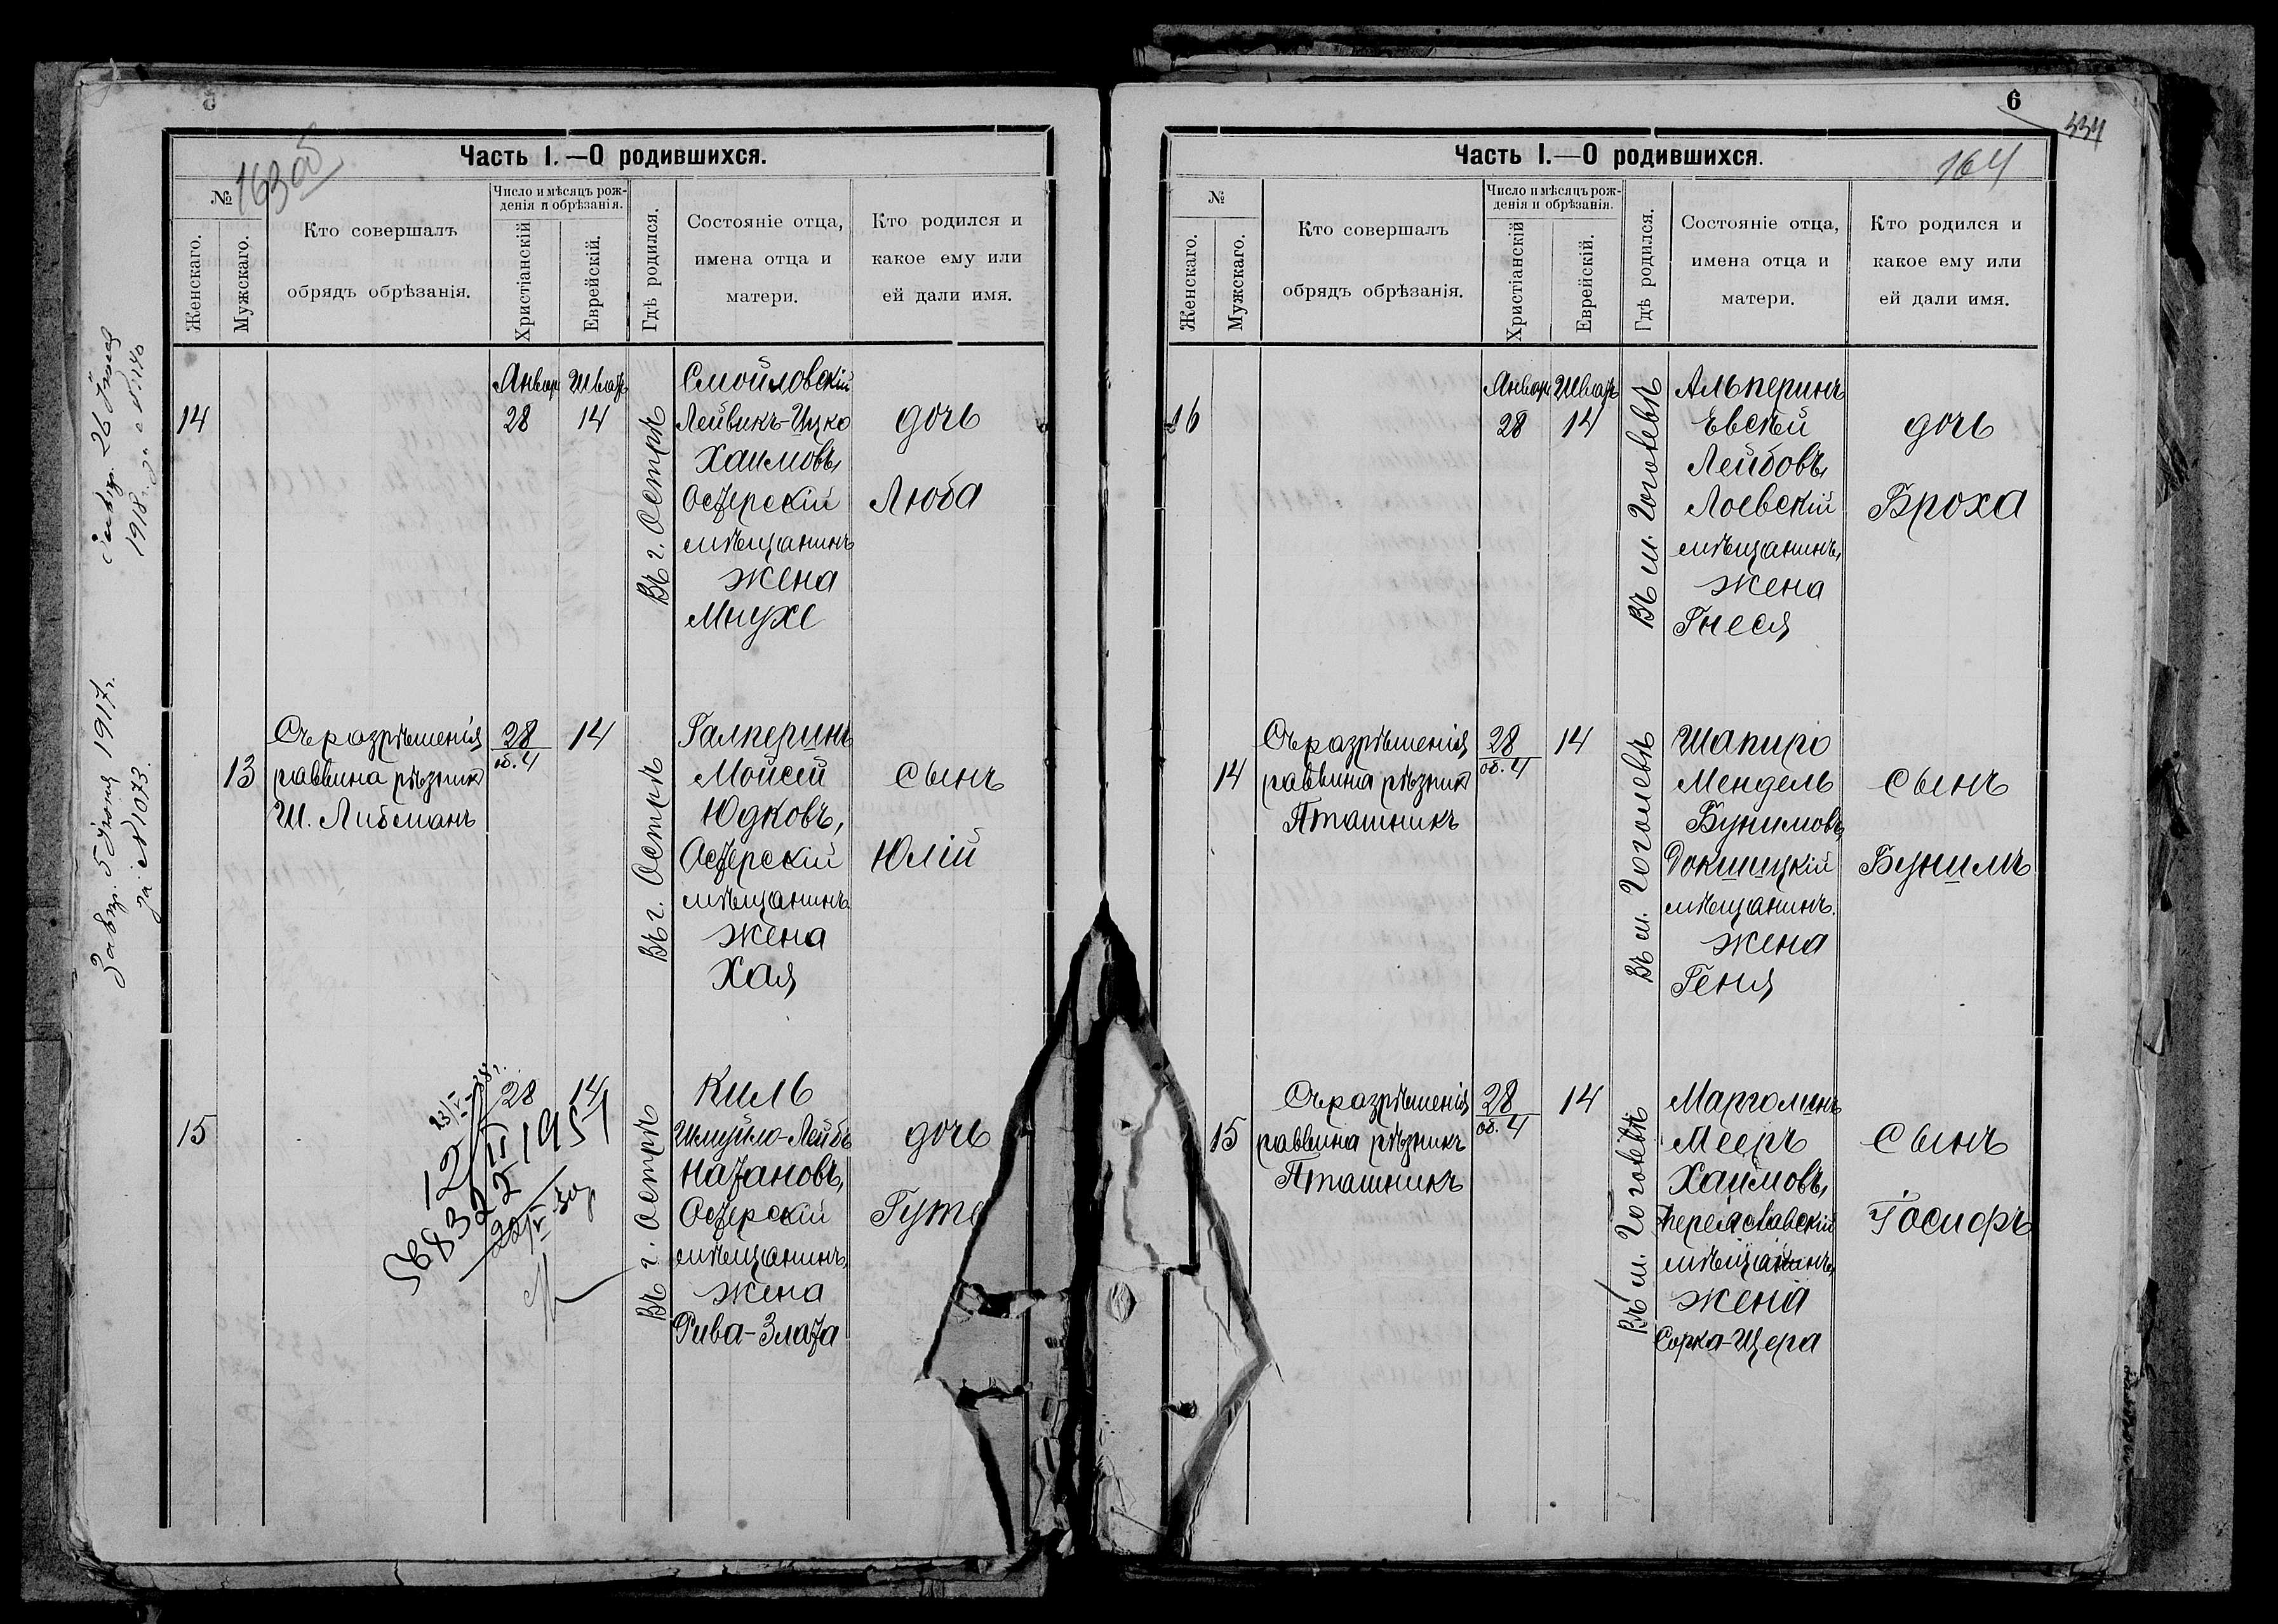 163об
Часть I.—О родившихся.
№
Женскаго.
Мужскаго.
Кто совершалъ
обрядъ обрѣзанія.
Число и мѣсяцъ рож-
денія и обрѣзанія.
Христіанскій
Еврейскій.
Гдѣ родился.
Состояніе отца,
имена отца и
матери.
Кто родился и
какое ему или
ей дали имя.
14
Январ
28
Шватъ
14
Въ г. Острѣ
Смойловскій
Лейвикъ-Ицко
Хаимовъ,
Остерскій
мѣщанинъ
жена
Мнухе
дочь
Люба
26
1918 г.
13
Съ разрѣшенія
раввина рѣзник
Ш. Либманъ
28
об. 4
14
Въ г. Острѣ
Галперинъ
Мойсей
Юдковъ,
Остерскій
мѣщанинъ.
жена
Хая
сынъ
Юлій
5 Іюня 1917 г.
за №1073.
15
28
14
Въ г. Острѣ
Киль
Шмуйло-Лейбъ
Натановъ,
Остерскій
мѣщанинъ,
жена
Рива-Злата
дочь
Гуте
6
334
164
Часть I.—О родившихся.
№
Женскаго.
Мужскаго.
Кто совершалъ
обрядъ обрѣзанія.
Число и мѣсяцъ рож-
денія и обрѣзанія.
Христіанскій
Еврейскій.
Гдѣ родился.
Состояніе отца,
имена отца и
матери.
Кто родился и
какое ему или
ей дали имя.
16
Январ
28
Шватъ
14
Въ м. Гоголевѣ
Альперинъ
Евсѣй
Лейбовъ,
Лоевскій
мѣщанинъ,
жена
Гнеся
дочь
Броха
14
Съ разрѣшенія
раввина рѣзник
Пташникъ
28
об. 4
14
Въ м. Гоголевѣ
Шапиро
Мендель
Бунимовъ,
Докшицкій
мѣщанинъ.
жена
Геня
сынъ
Бунимъ
15
Съ разрѣшенія
раввина рѣзникъ
Пташникъ
28
об. 4
14
Въ м. Гоголевѣ
Марголинъ
Мееръ
Хаимовъ,
Переяславскій
мѣщанинъ,
жена
Сорка-Щера
сынъ
Іосифъ